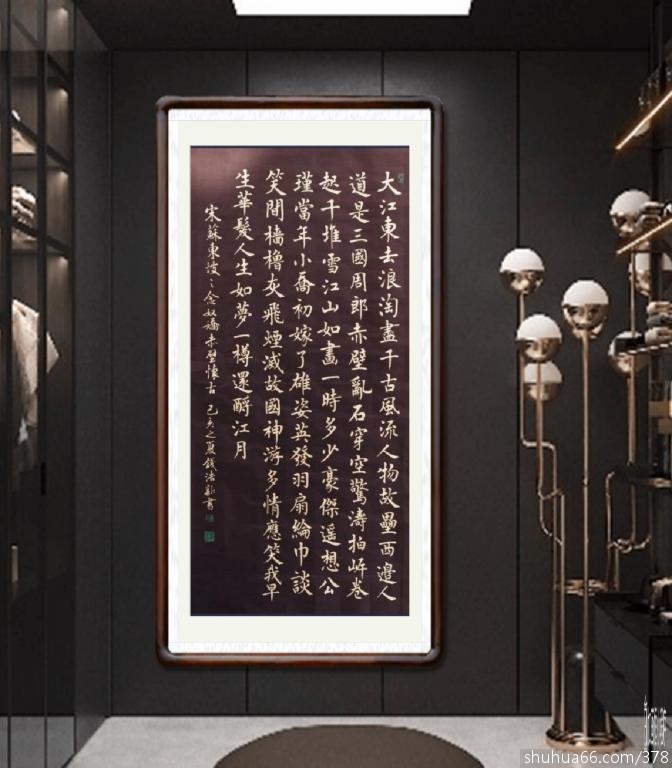 大江東去浪淘盡千古風流人物故壘西邊人
道是三國周郎赤壁亂石穿空驚濤拍岍卷
起千堆雪江山如畫一時多少豪傑遥想公
瑾當年小喬初嫁了雄姿英發羽扇綸巾談
笑間檣櫓灰飛煙滅故國神游多情應笑我早
生華髮人生如夢一樽還酹江月
宋蘇東坡之念奴嬌赤壁懷古 己亥之夏錢法新書
shuhua66.com/378